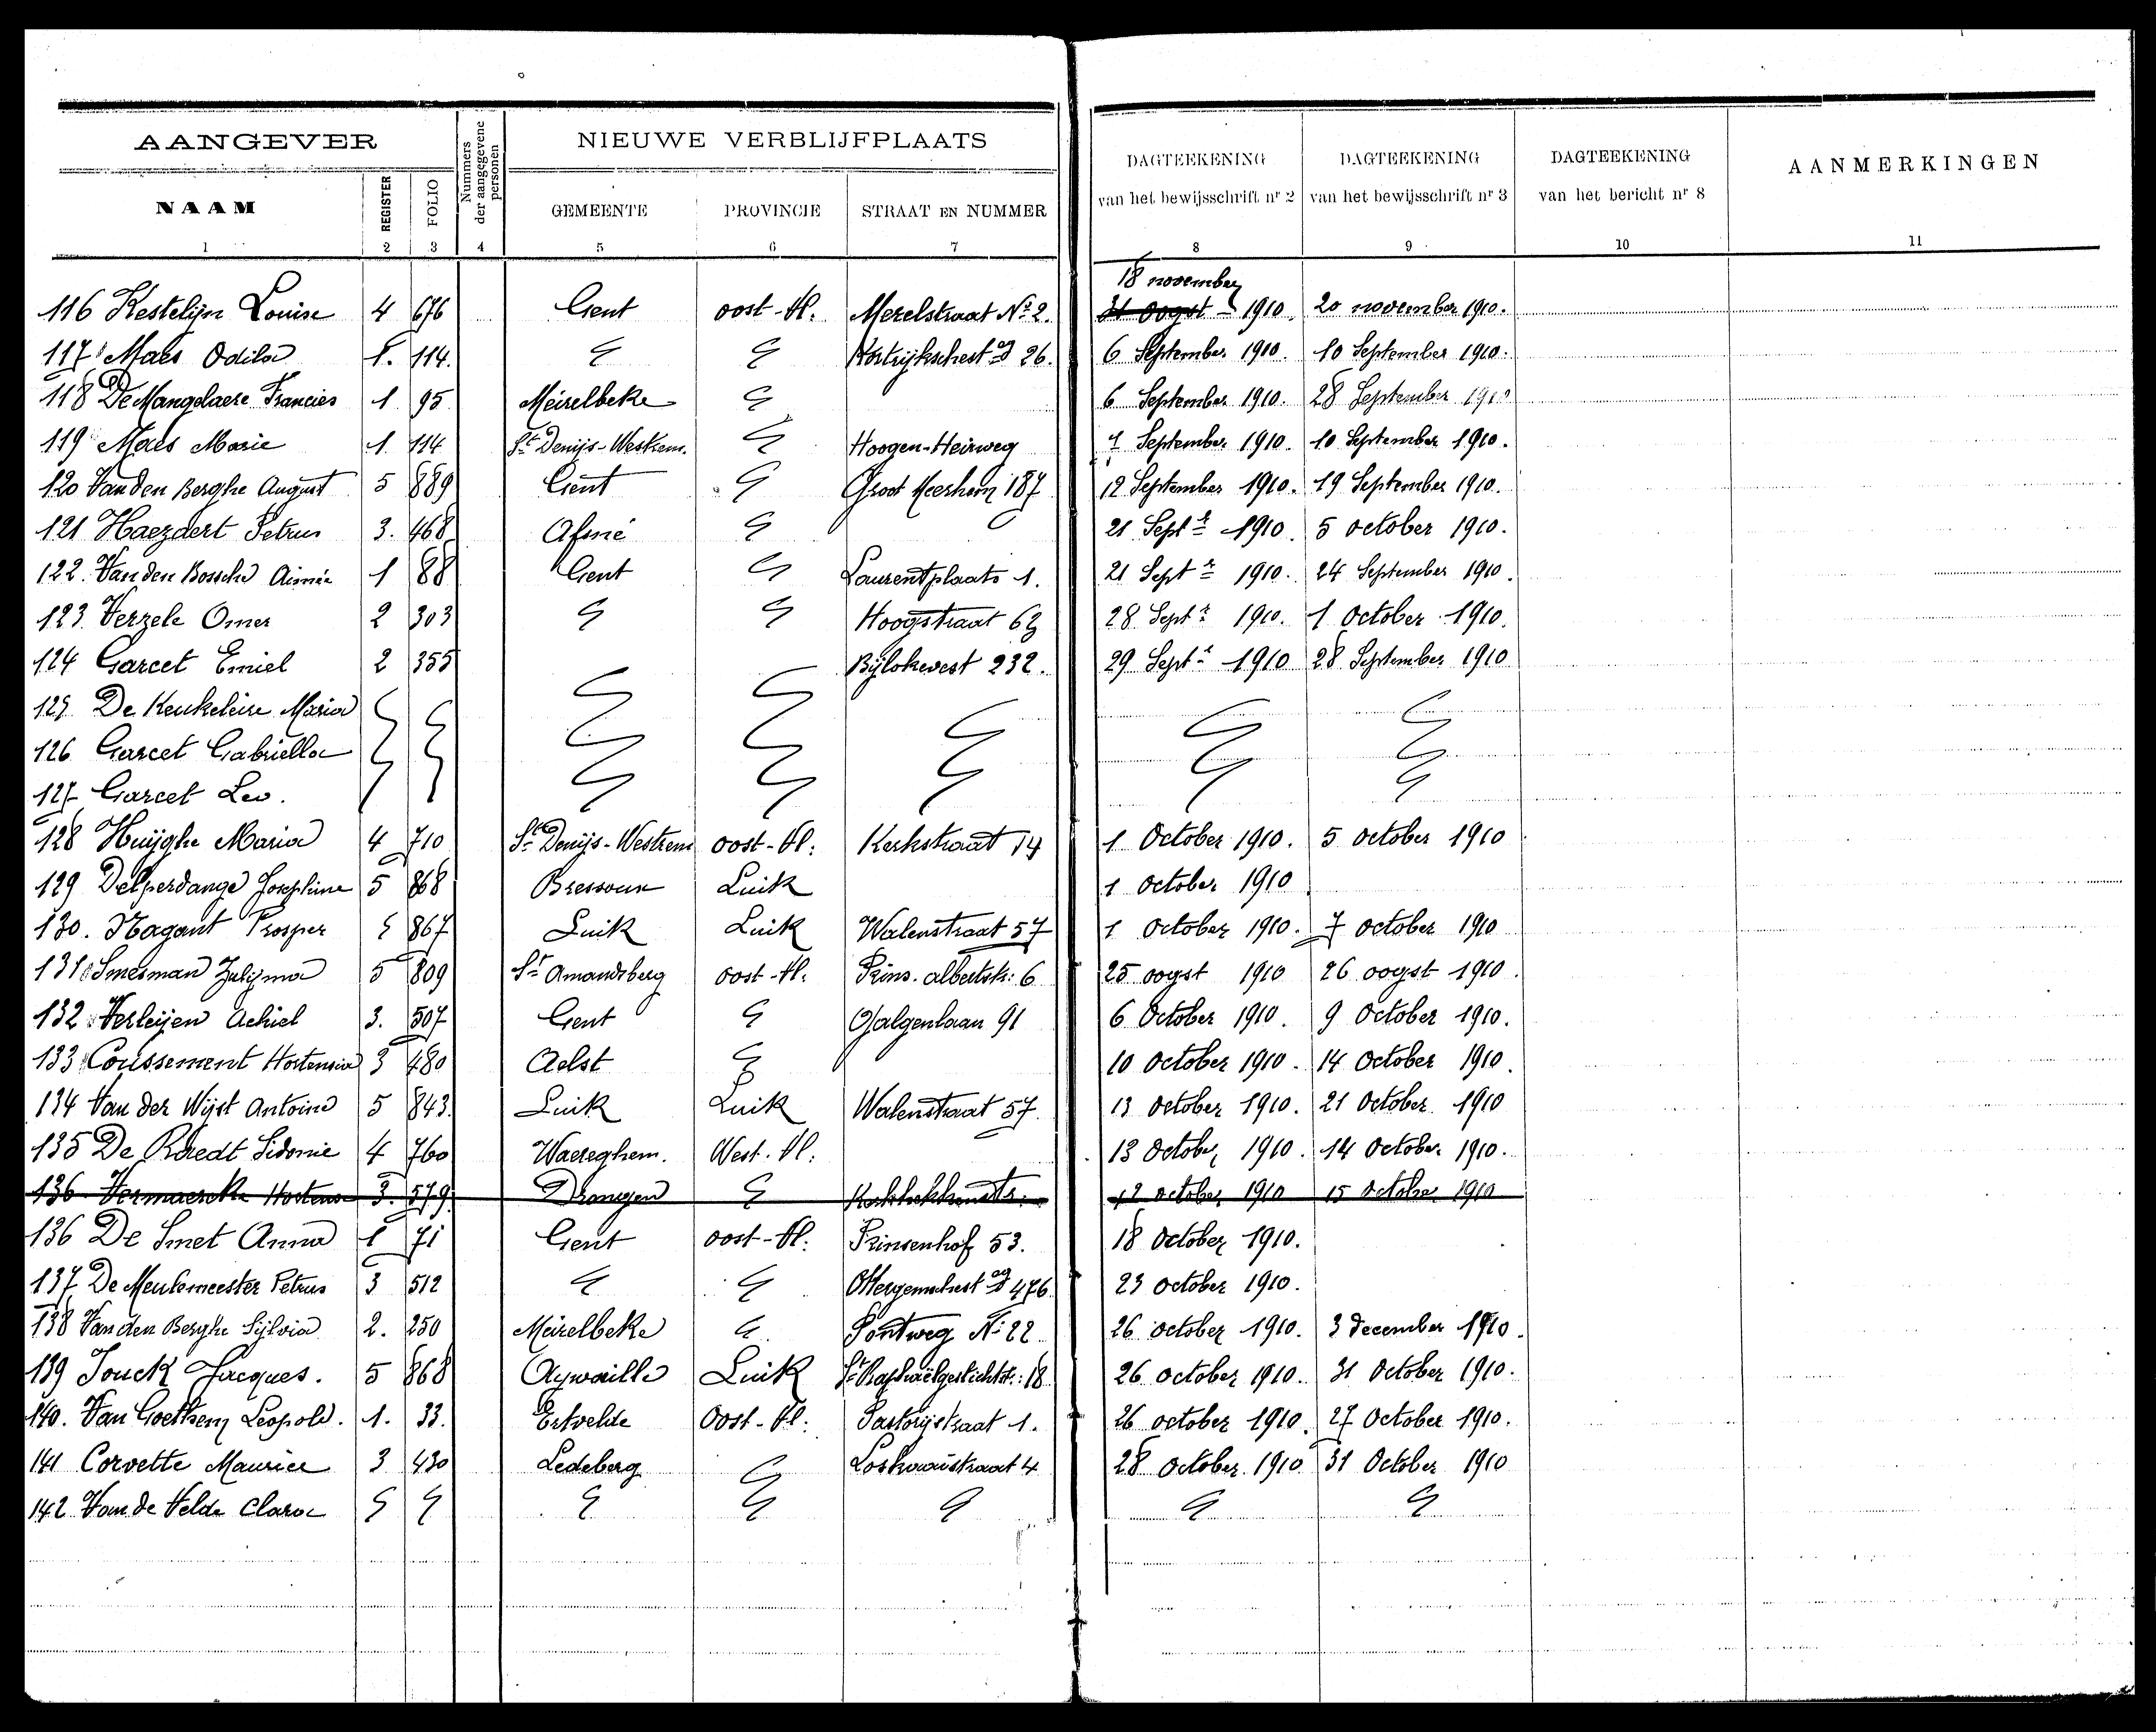 AANGEVER
Nummers der aangegevene personen
NIEUWE VERBLIJFPLAATS
DAGTEEKENING van het bewijsschrift nr 2
DAGTEEKENING van het bewijsschrift nr 3
DAGTEEKENING van het bericht nr 8
AANMERKINGEN
NAAM REGISTER FOLIO GEMEENTE PROVINCIE STRAAT EN NUMMER
1 2 3 4 5 6 7 8 9 10 11
18 november
116 Kestelijn Louise 4 676 Gent oost-Vl. Merelstraat No 2. 31 oogst 1910. 20 november 1910.
117 Maes Odila 1. 114. 26. 6 September 1910. 10 September 1910.
118 De Mangelaere Francies 1 95 Meirelbeke 6 September 1910. 28 September 1910
119 Maes Marie 1. 114 St Denijs-Westrem. Hoogen-Heirweg 7 September 1910. 10 September 1910.
120 Van den Berghe August 5 889 Gent Groot Meerhem 187 12 September 1910. 19 September 1910.
121 Haezaert Petrus 3. 468 Afsné 21 Sept r 1910. 5 october 1910.
122. Van den Bossche Aimée 1 88 Gent Laurentplaats 1. 21 Sept r 1910. 24 September 1910.
123 Verzele Omer 2 303 Hoogstraat 63 28 Sept r 1910. 1 October 1910.
124 Garcet Emiel 2 355 Bijlokevest 232. 29 Sept r 1910 28 September 1910
125 De Keukeleire Maria
126 Garcet Gabriella
127 Garcet Leo.
128 Huijghe Maria 4 710 St Denijs-Westrem oost-Vl. Kerkstraat 14 1 October 1910. 5 october 1910
129 Delperdange Josephine 5 868 Bressoux Luik 1 october 1910
130. Nagant Prosper 5 867 Luik Luik Walenstraat 57 1 October 1910. 7 october 1910
131 Smesman Zulijma 5 809 St Amandsberg oost-Vl. Prins. albertstr: 6 25 oogst 1910 26 oogst 1910.
132 Verleijen Achiel 3. 507 Gent Galgenlaan 91 6 October 1910. 9 October 1910.
133 Coussement Hortensia 3 480 Aelst 10 october 1910. 14 October 1910.
134 Van der Wijst Antoine 5 843. Luik Luik Walenstraat 57 13 October 1910. 21 October 1910
135 De Raedt Sidonie 4 760 Waereghem. West-Vl. 13 October 1910. 14 October 1910.
136 Vermaercke Hortense 3. 579 Drongen 12 october 1910 15 October 1910
136 De Smet Anna 1 71 Gent oost-Vl. Prinsenhof 53. 18 October 1910.
137 De Meulemeester Petrus 3 512 476 23 october 1910.
138 Van den Berghe Sijlvia 2. 250 Meirelbeke Pontweg No 22 26 october 1910. 3 december 1910.
139 Jouck Jacques. 5 868 Aywaille Luik St Raphaëlgestichtstr: 18 26 october 1910. 31 October 1910.
140. Van Goethem Leopold. 1. 33. Ertvelde Oost-Vl: Pastorijstraat 1. 26 october 1910. 27 October 1910.
141 Corvette Maurice 3 430 Ledeberg 4 28 October 1910. 31 October 1910
142 Van de Velde Clara